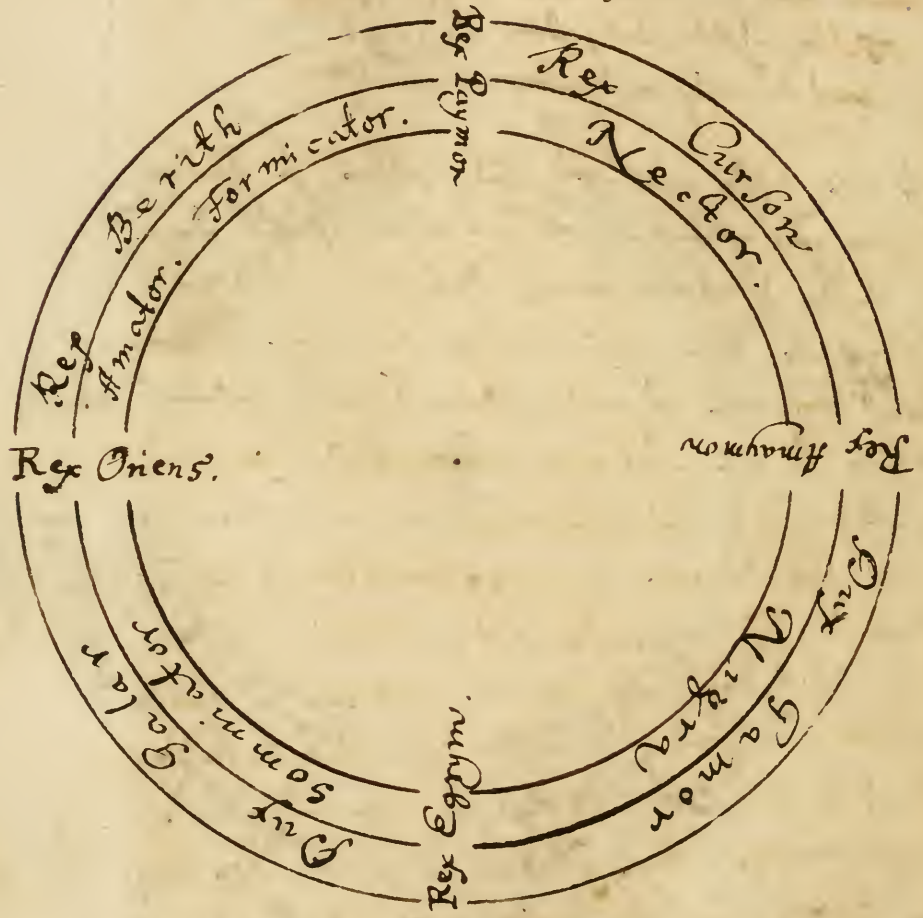 Rex Paymon
Rex Curson
Nector.
Rex Amaymon
Dux Gamor
Nigra
Rex Egym.
Dux Galar
Somniator
Rex Oriens.
Rex Berith
Amator. Formicator.